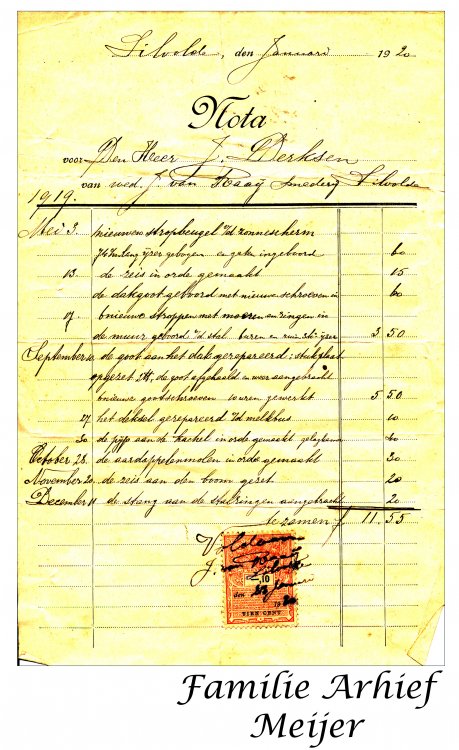 Silvolde, den Januari 1920
Nota
voor Den Heer J. Derksen
van wed. J. van Raaij Smederij Silvolde
1919.
Mei 3. nieuwen stropbeugel v/d zonnescherm
lang ijzer gebogen en gaten ingeboord 60
13. de zeis in orde gemaakt 15
de dakgoot geboord met nieuwe schroeven in 60
17. nieuwe stroppen met moeren en ringen in
de muur geboord v/d stal uren en ijzer 3 50
September de goot aan het dak gerepareerd: stuk plaat
opgezet, de goot afgehaald en weer aangebracht
nieuwe gootschroeven uren gewerkt 5 50
27 het deksel gerepareerd v/d melkbus 10
30. de pijp aan de kachel in orde gemaakt 60
October 28. de aardappelenmolen in orde gemaakt 30
November 20. de zeis aan den boom gezet. 20
December 11 de stang aan de stalringen aangebracht 20
te zamen f 11.55
Voldaan
J. v Raaij
10
den
TIEN CENT
Familie Arhief
Meijer